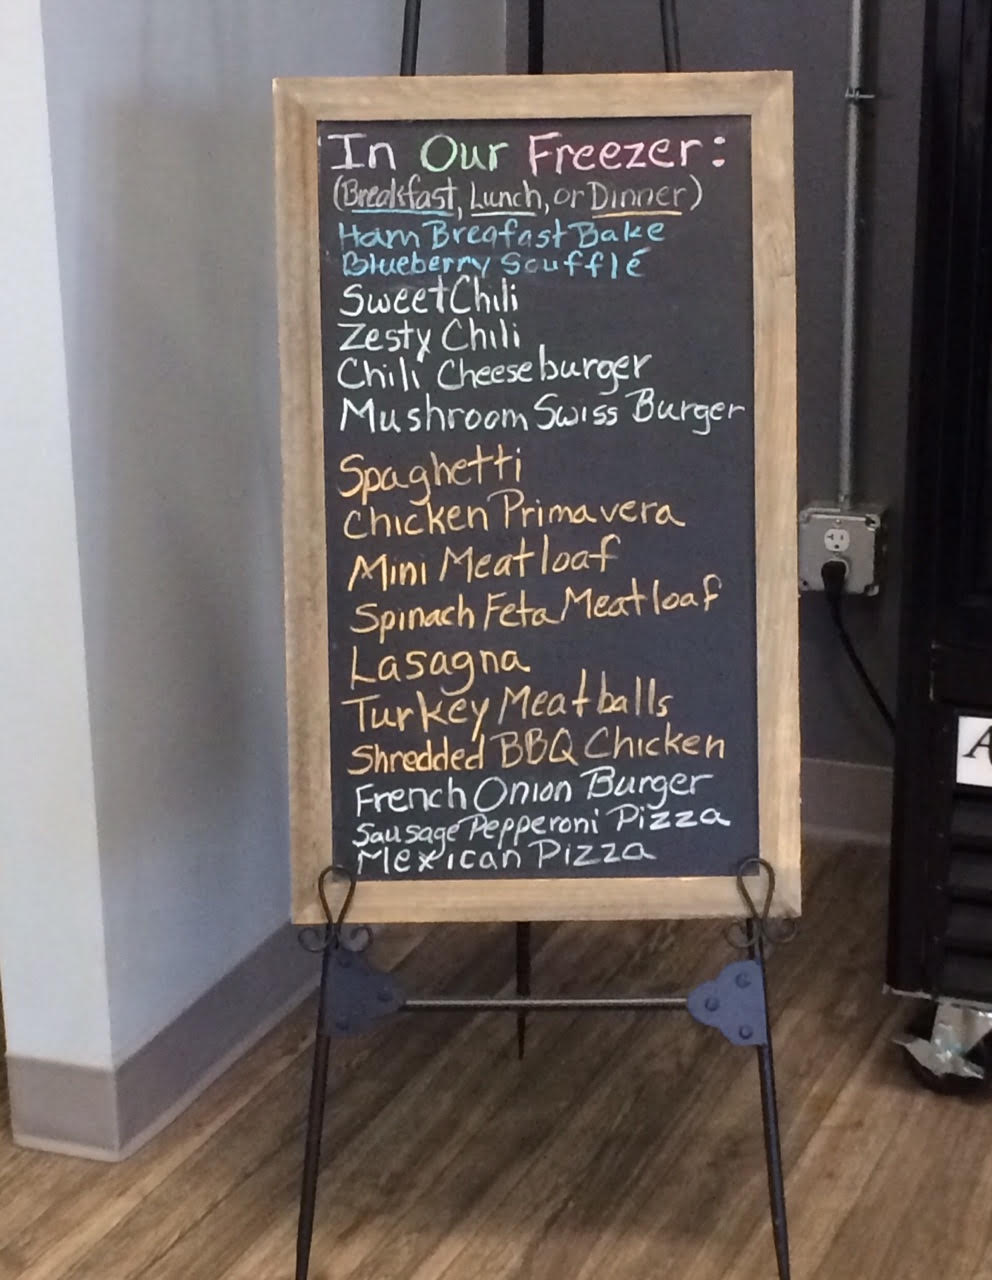 In Our Freezer:
(Breakfast, Lunch, or Dinner)
Ham Breafast Bake
Blueberry Soufflé
Sweet Chili
Zesty Chili
Chili Cheeseburger
Mushroom Swiss Burger
Spaghetti
Chicken Primavera
Mini Meatloaf
Spinach Feta Meatloaf
Lasagna
Turkey Meatballs
Shredded BBQ Chicken
French Onion Burger
Sausage Pepperoni Pizza
Mexican Pizza
A